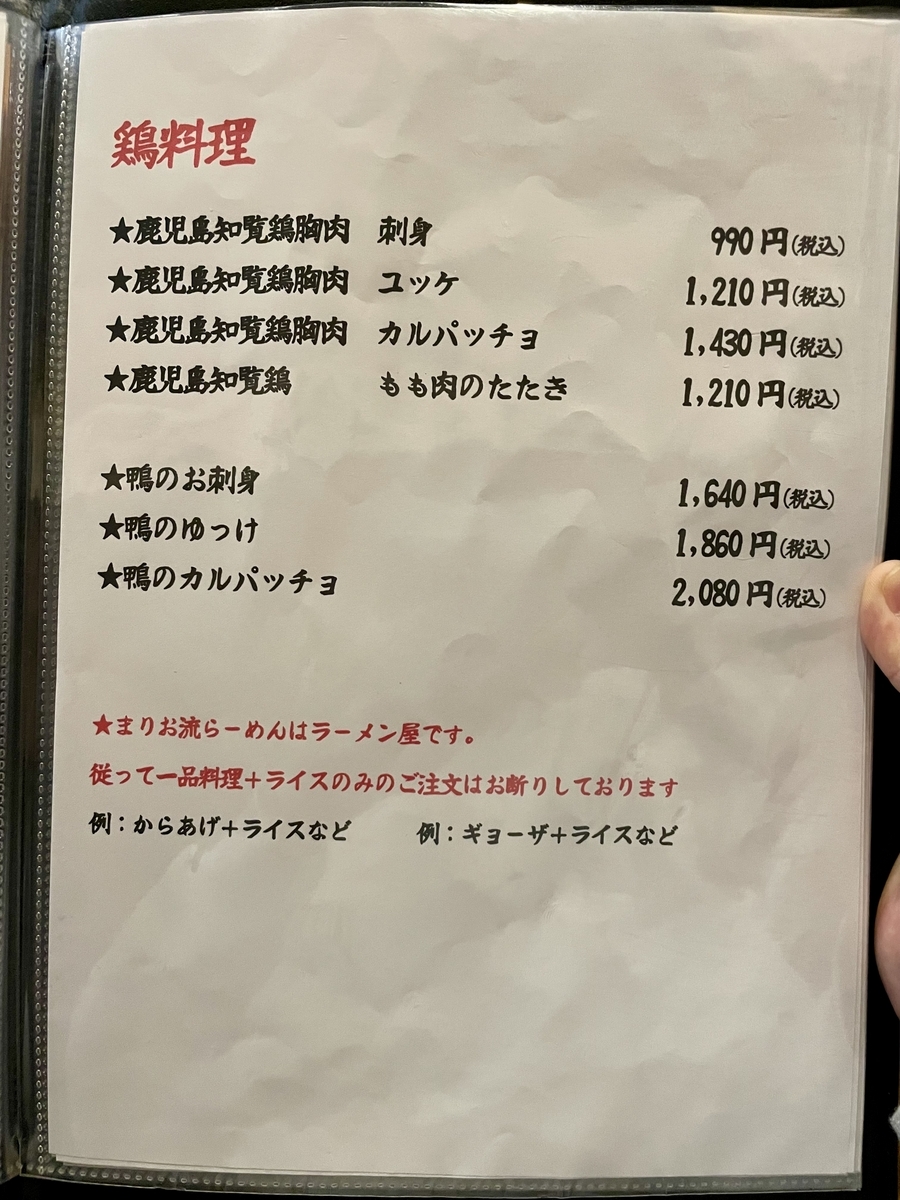 鶏料理
★鹿児島知覧鶏胸肉 刺身 990円(税込)
★鹿児島知覧鶏胸肉 ユッケ 1,210円(税込)
★鹿児島知覧鶏胸肉 カルパッチョ 1,430円(税込)
★鹿児島知覧鶏 もも肉のたたき 1,210円(税込)
★鴨のお刺身 1,640円(税込)
★鴨のゆっけ 1,860円(税込)
★鴨のカルパッチョ 2,080円(税込)
★まりお流らーめんはラーメン屋です。
従って一品料理+ライスのみのご注文はお断りしております
例：からあげ+ライスなど 例：ギョーザ+ライスなど